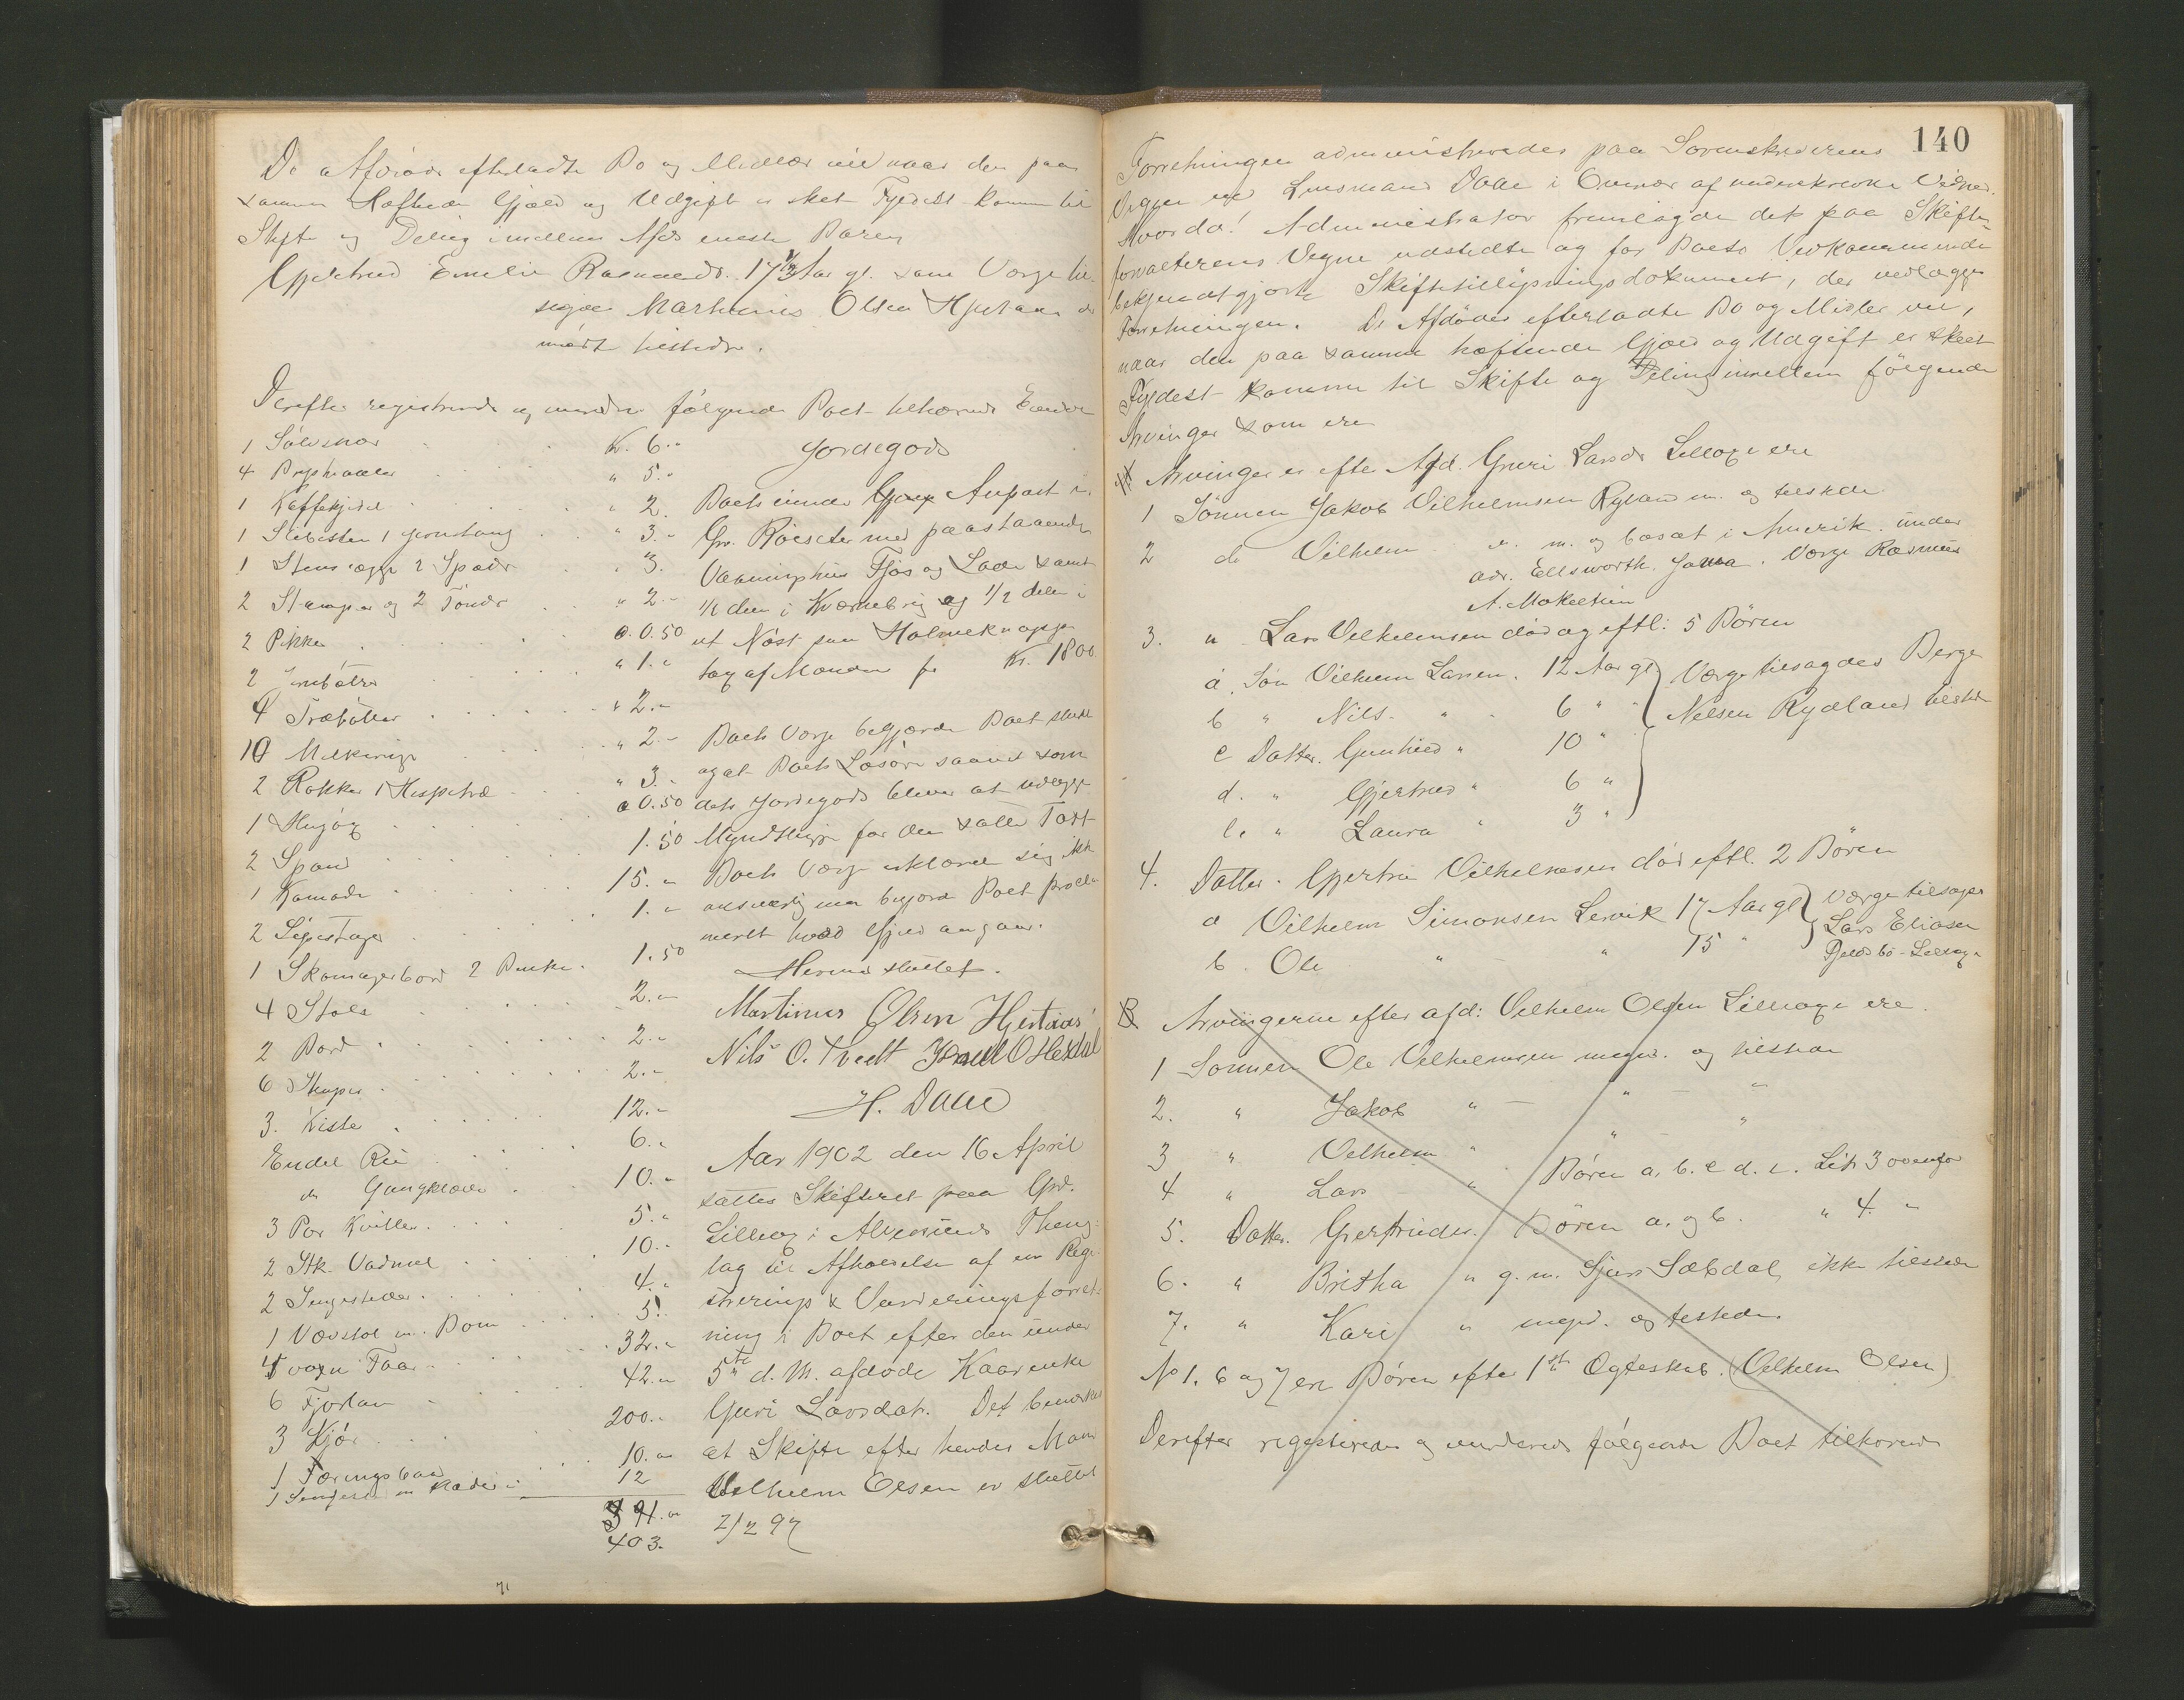 De Afdødes efterladte Bo og Midler vil naar den paa
samme Heftende Gjæld og Udgift er sket Fyldest komme til
Skifte og Deling imellem Afdø eneste Barn
Gjertrud Emelie Rasmusdr. 17 1/2 Aar gl. som Værge til-
siges Martinus Olsen Hjertaas der
mødte tilstede.
Derefter registreredes og vurderedes følgende Boet tilhørende Eiendele
1 Sølvsnor Kr. 6.-
4 " 5.-
1 Kaffekjedel " 2.
1 Slibesten 1 Jernstang " 3.-
1 2 Spader " 3.
2 Stamper og 2 Tønder " 2.-
2 Pikker a. 0.50
2 " 1.-
4 Træbøtter " 2.-
10 Melkeringe " 2.-
2 Rokker 1 Hespetræ " 3.-
1 a 0.50
2 Spand 1.50
1 Komode 15.-
2 Lysestager 1.-
1 Skomagerbord 2 Benke. 1.50
4 Stole 2.-
2 Bord 2.-
6 2.-
3. Kiste 12.-
Endel 6.-
do Gangklæder 10.-
3 Par Kvitler 5.-
2 Stk. Vadmel 10.-
2 Sengesteder 4.-
1 Vævstol m. Bom 5.
4 voxn Faar 32.-
6 Fjorlam 42.-
3 Kjør 200.-
1 Færingsbaad 10.-
1 m Klæder i 12
391.-
403.
Jordegods
Boets Anpart i
Gr. med paastaaende
Vaaningshus Fjøs og Lade samt
1/2 den i og 1/2 delen i
et Nøst paa Holmeknappen
tag af Manden for Kr. 1800
Boets Værge begjærde Boet sluttet
og at Boets Løsøre saavel som
dets Jordegods bliver at udlægge
Myndtlinge for den satte Taxt
Boets Værge erklærede sig ikke
ansvarlig men begjærede Boet
hvad Gjæld angaar.
Hermed sluttet.
Martinus Olsen Hjertaas
Nils O. Tvedt
H. Daae
Aar 1902 den 16 April
sattes Skifteret paa Grd.
Lilleoxe i Alversunds Thing-
lag til Afholdelse af en Regi-
strerings & Vurderingsforret-
ning i Boet efter den under
5te d. M. afdøde Kaarenke
Guri Larsdatr. Det bemærkes
at Skifte efter hendes Mand
Velhelm Olsen er sluttet
2/2 97
140
Forretningen administreredes paa Sorenskriverens
Vegne ved Lensmand Daae i Overvær af underskrevne Vidner.
Hvorda! Administrator fremlagde det paa Skifte-
forvalterens Vegne udstedte og for Boets Vedkommende
bekjendtgjorte Skiftetillysningsdokument, der vedlægges
Forretningen. De Afdødes efterladte Bo og Midler vil,
naar den paa samme heftende Gjæld og Udgift er skeet
Fyldest komme til Skifte og Deling imellem følgende
Arvinger som ere
A. Arvinger er efter Afd. Guri Larsdr Lilleoxe ere
1 Sønnen Jakob Vilhelmsen Ryland m. og tilstede
2 do Vilhelm " m. og bosat i Amerik. under
adr. Ellsworth, Jowa. Værge Rasmus
A. Mokeltun
3. " Lars Velhelmsen død og eftl: 5 Børn
a. Søn Vilhelm Larsen. 12 Aar gl Værge tilsagdes Berge
b " Nils - " 6 " Nelsen Rydland tilstede
c Datter. Gunhild " 10 "
d. " Gjertrud " 6 "
e. " Laura " 3 "
4. Datter. Gjertru Velhelmsen død eftl. 2 Børn
a Vilhelm Simonsen Lervik 17 Aar gl Værge tilsiges
b. Ole " " 15 " Lars Eliasen
Lilleoxe
B Arvingerne efter afd: Velhelm Olsen Lilleoxe ere
1 Sønnen Ole Velhelmsen mynd. og tilstede
2. " Jakob " - " - "
3 " Velhelm " " - "
4 " Lars " Børn a. b. c d. e. Litr 3 ovenfor
5. Datter. Gjertruder. Børn a. og b. " 4. -
6. " Britha " g. m. Sjurs Sæbdal, ikke tilstede
7. " Kari " mynd. og tilstede.
No 1. 6 og 7 ere Børn efter 1st Ægteskab. (Velhelm Olsen)
Derefter registreredes og vurderedes følgende Boet tilhørende